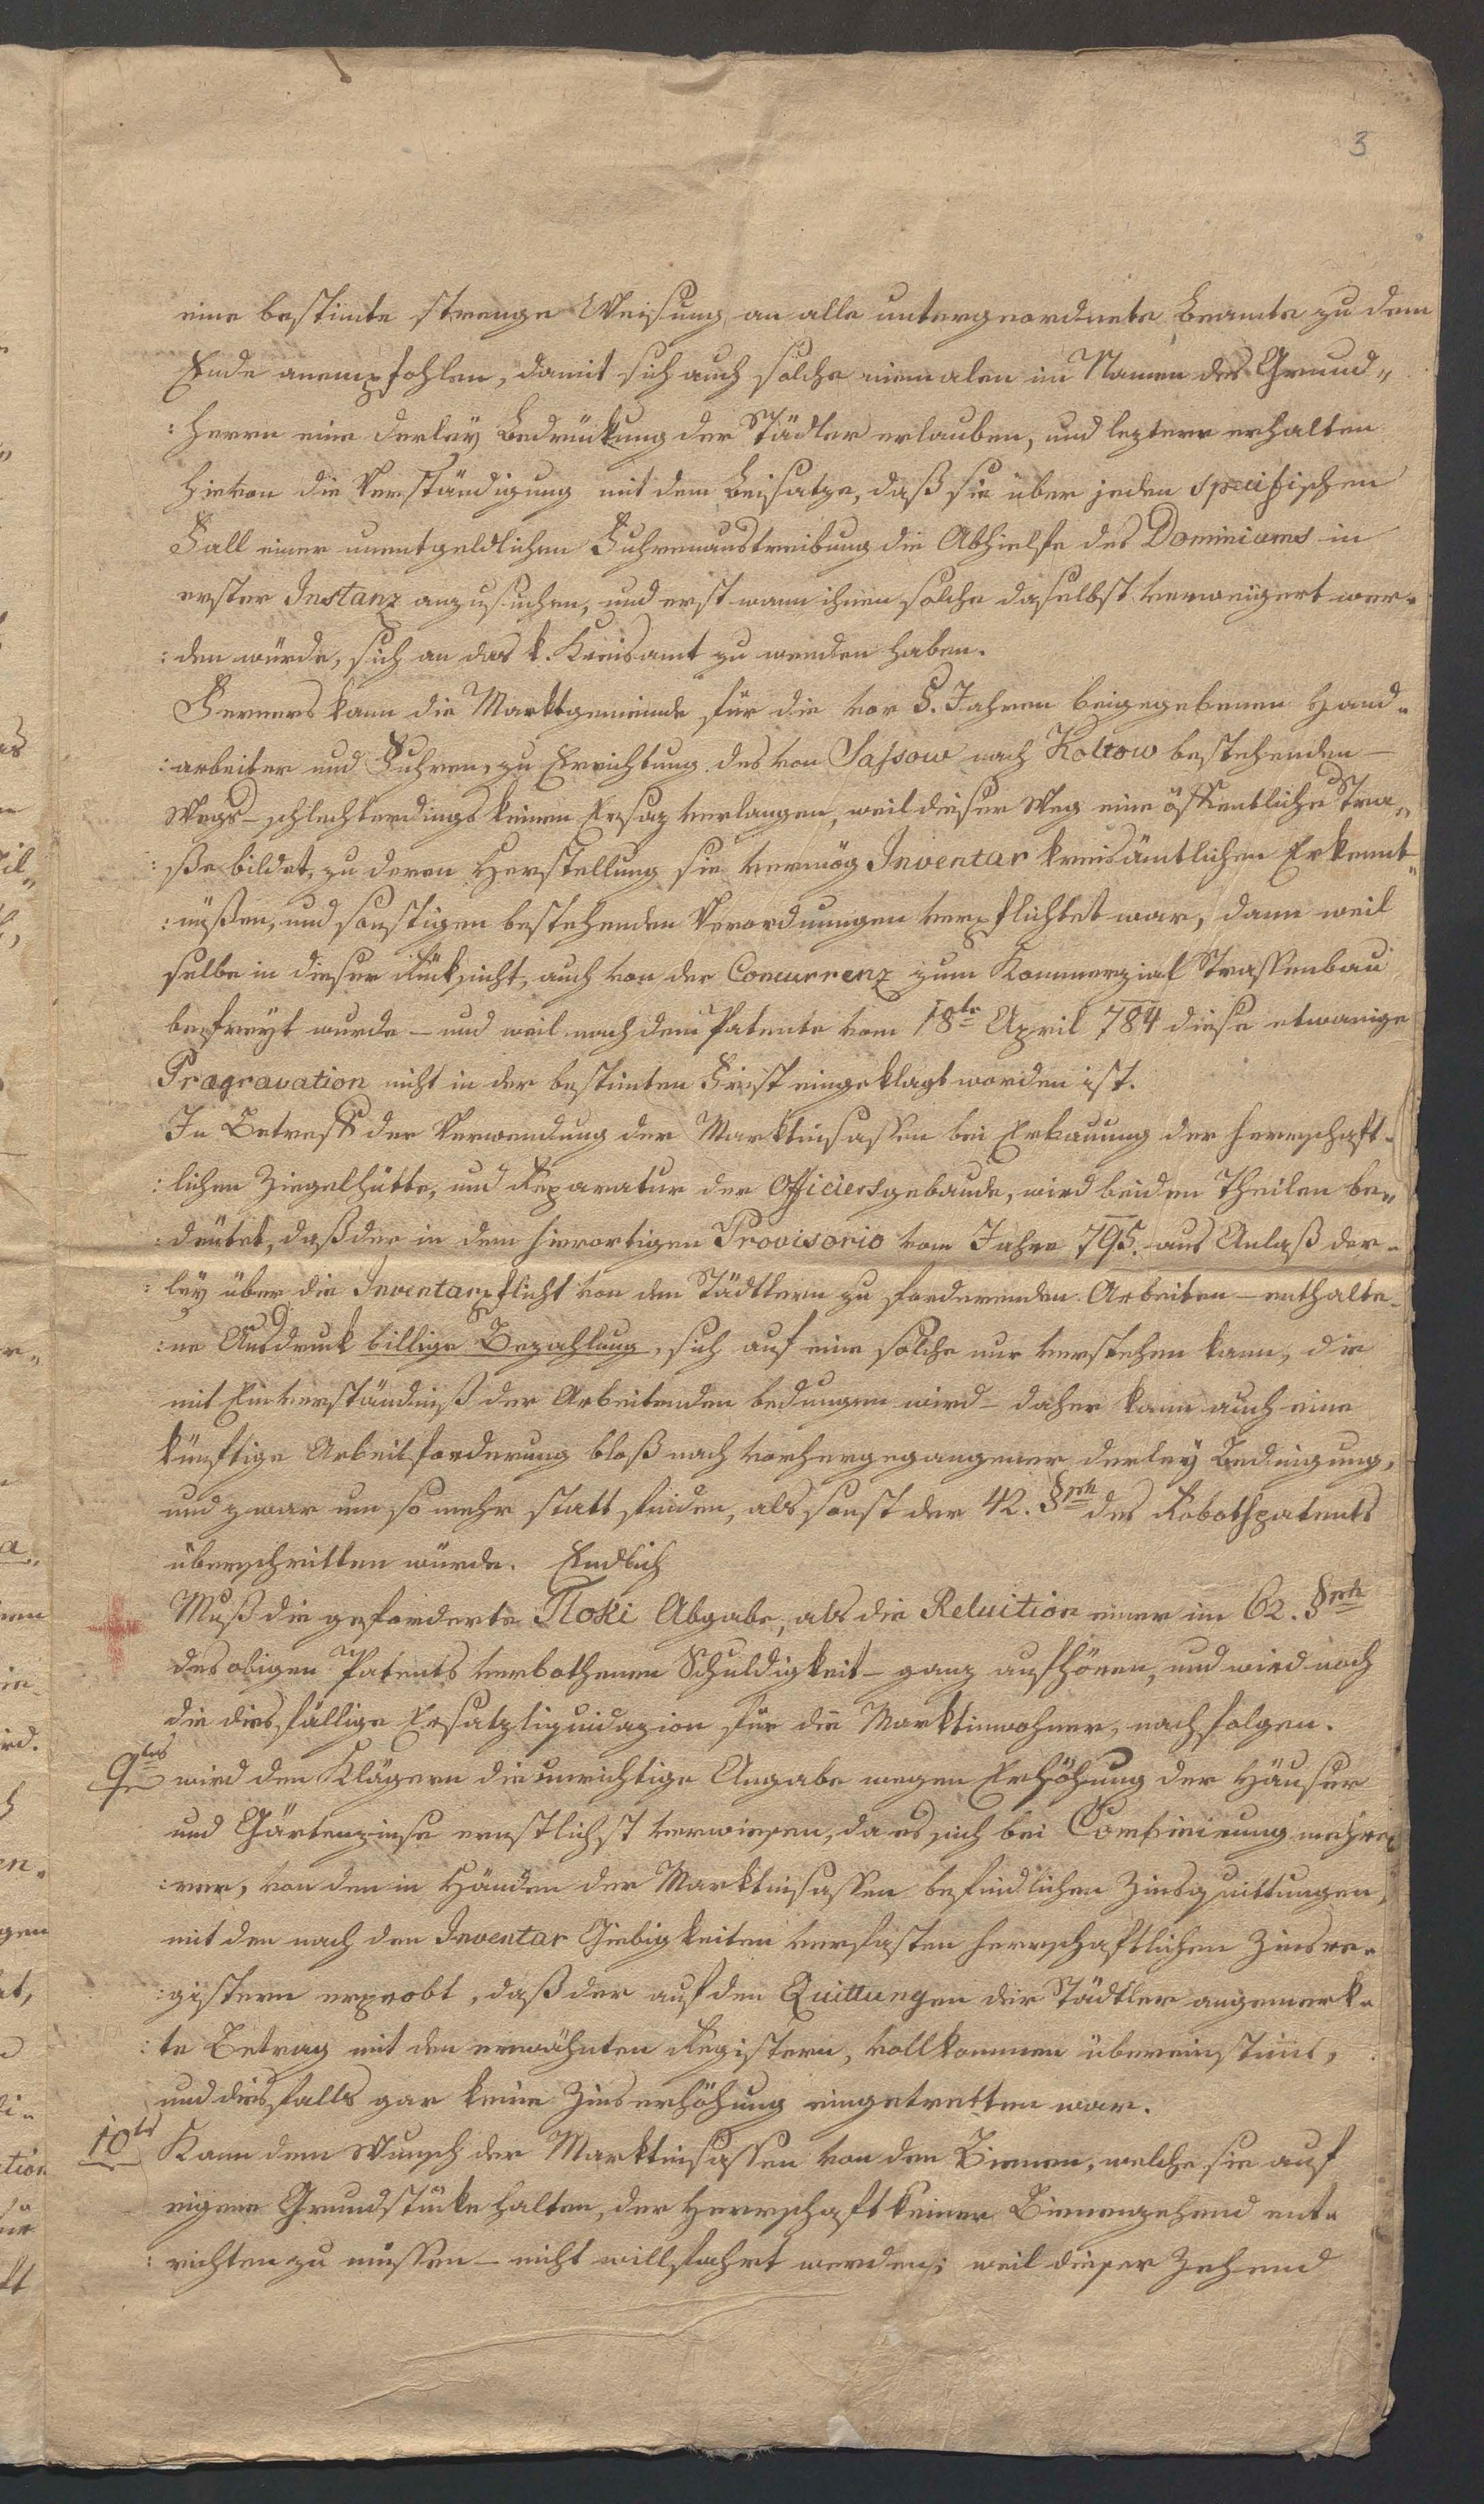 3
eine bestimte strenge Weisung an alle untergeordnete Beamte zu dem
Ende anempfohlen, damit sich auch solche niemalen im Namen des Grund„
:herrn eine derley Bedrückung der Städtler erlauben, und leztere erhalten
hievon die Verständigung mit dem Beisatze, daß sie über jeden specifischen
Fall einer unentgeldlichen Fuhrenaustreibung die Abhielfe des Dominiums in
erster Instanz anzusuchen, und erst wann ihnen solche daselbst verweigert wer-
:den würde, sich an das k. Kreisamt zu wenden haben.
Ferners kann die Marktgemeinde für die vor 5. Jahren beigegebenen Hand-
:arbeiter und Fuhren, zu Errichtung des von Sassow nach Koltow bestehenden –
Wegs – schlechterdings keinen Ersaz verlangen, weil dieser Weg eine öffentliche Stra„
:ße bildet, zu deren Herstellung sie vermög Inventar kreisämtlichen Erkennt„
:nüßen, und sonstigen bestehenden Verordnungen verpflichtet war, dann weil
selbe in dieser Rücksicht, auch von der Concurrenz zum Kommerzial Strassenbau
befreyt wurde – und weil nach dem Patente vom 18te April 784 diese etwanige
Prægravation nicht in der bestimten Frist eingeklagt worden ist.
In Betreff der Verwendung der Marktinsassen bei Erbauung der herrschaft-
:lichen Ziegelhütte, und Reparatur der Officiersgebäude, wird beiden Theilen be„
:deütet, daß der in dem hierortigen Provisorio vom Jahre 795. aus Anlaß der-
:ley über die Inventarpflicht von den Städtlern zu fordernden Arbeiten – enthalte-
:ne Ausdruck billige Bezahlung, sich auf eine solche nur verstehen kann, die
mit Einverständniß der Arbeitenden bedungen wird – daher kann auch eine
künftige Arbeitforderung bloß nach vorhergegangener derley Bedingung,
und zwar um so mehr statt finden, als sonst der 42. §ph des Robothpatents
überschritten würde. Endlich
Muß die geforderte Tloki Abgabe, als die Reluition einer im 62. §ph
des obigen Patents verbothenen Schuldigkeit – ganz aufhören, und wird noch
die diesfällige Ersatzliquidazion für die Marktinwohner, nachfolgen.
9tens wird den Klägern die unrichtige Angabe wegen Erhöhung der Häuser
und Gärtenzinse ernstlichst verwiesen, da es sich bei Combinirung mehre-
:rer, von den in Händen der Marktinsassen befindlichen Zinsquittungen,
mit den nach den Inventar Giebigkeiten verfasten herrschaftlichen Zinsre-
:gistern erprobt, daß der auf den Quittungen der Städtler angemerk-
:te Betrag mit den erwähnten Registern, vollkommen übereinstimt,
und diesfalls gar keine Zinserhöhung eingetretten war.
10tes Kann dem Wunsch der Marktinsassen von den Bienen, welche sie auf
eigene Grundstücke halten, der Herrschaft keinen Bienenzehend ent-
:richten zu müssen – nicht willfahrt werden; weil dieser Zehend